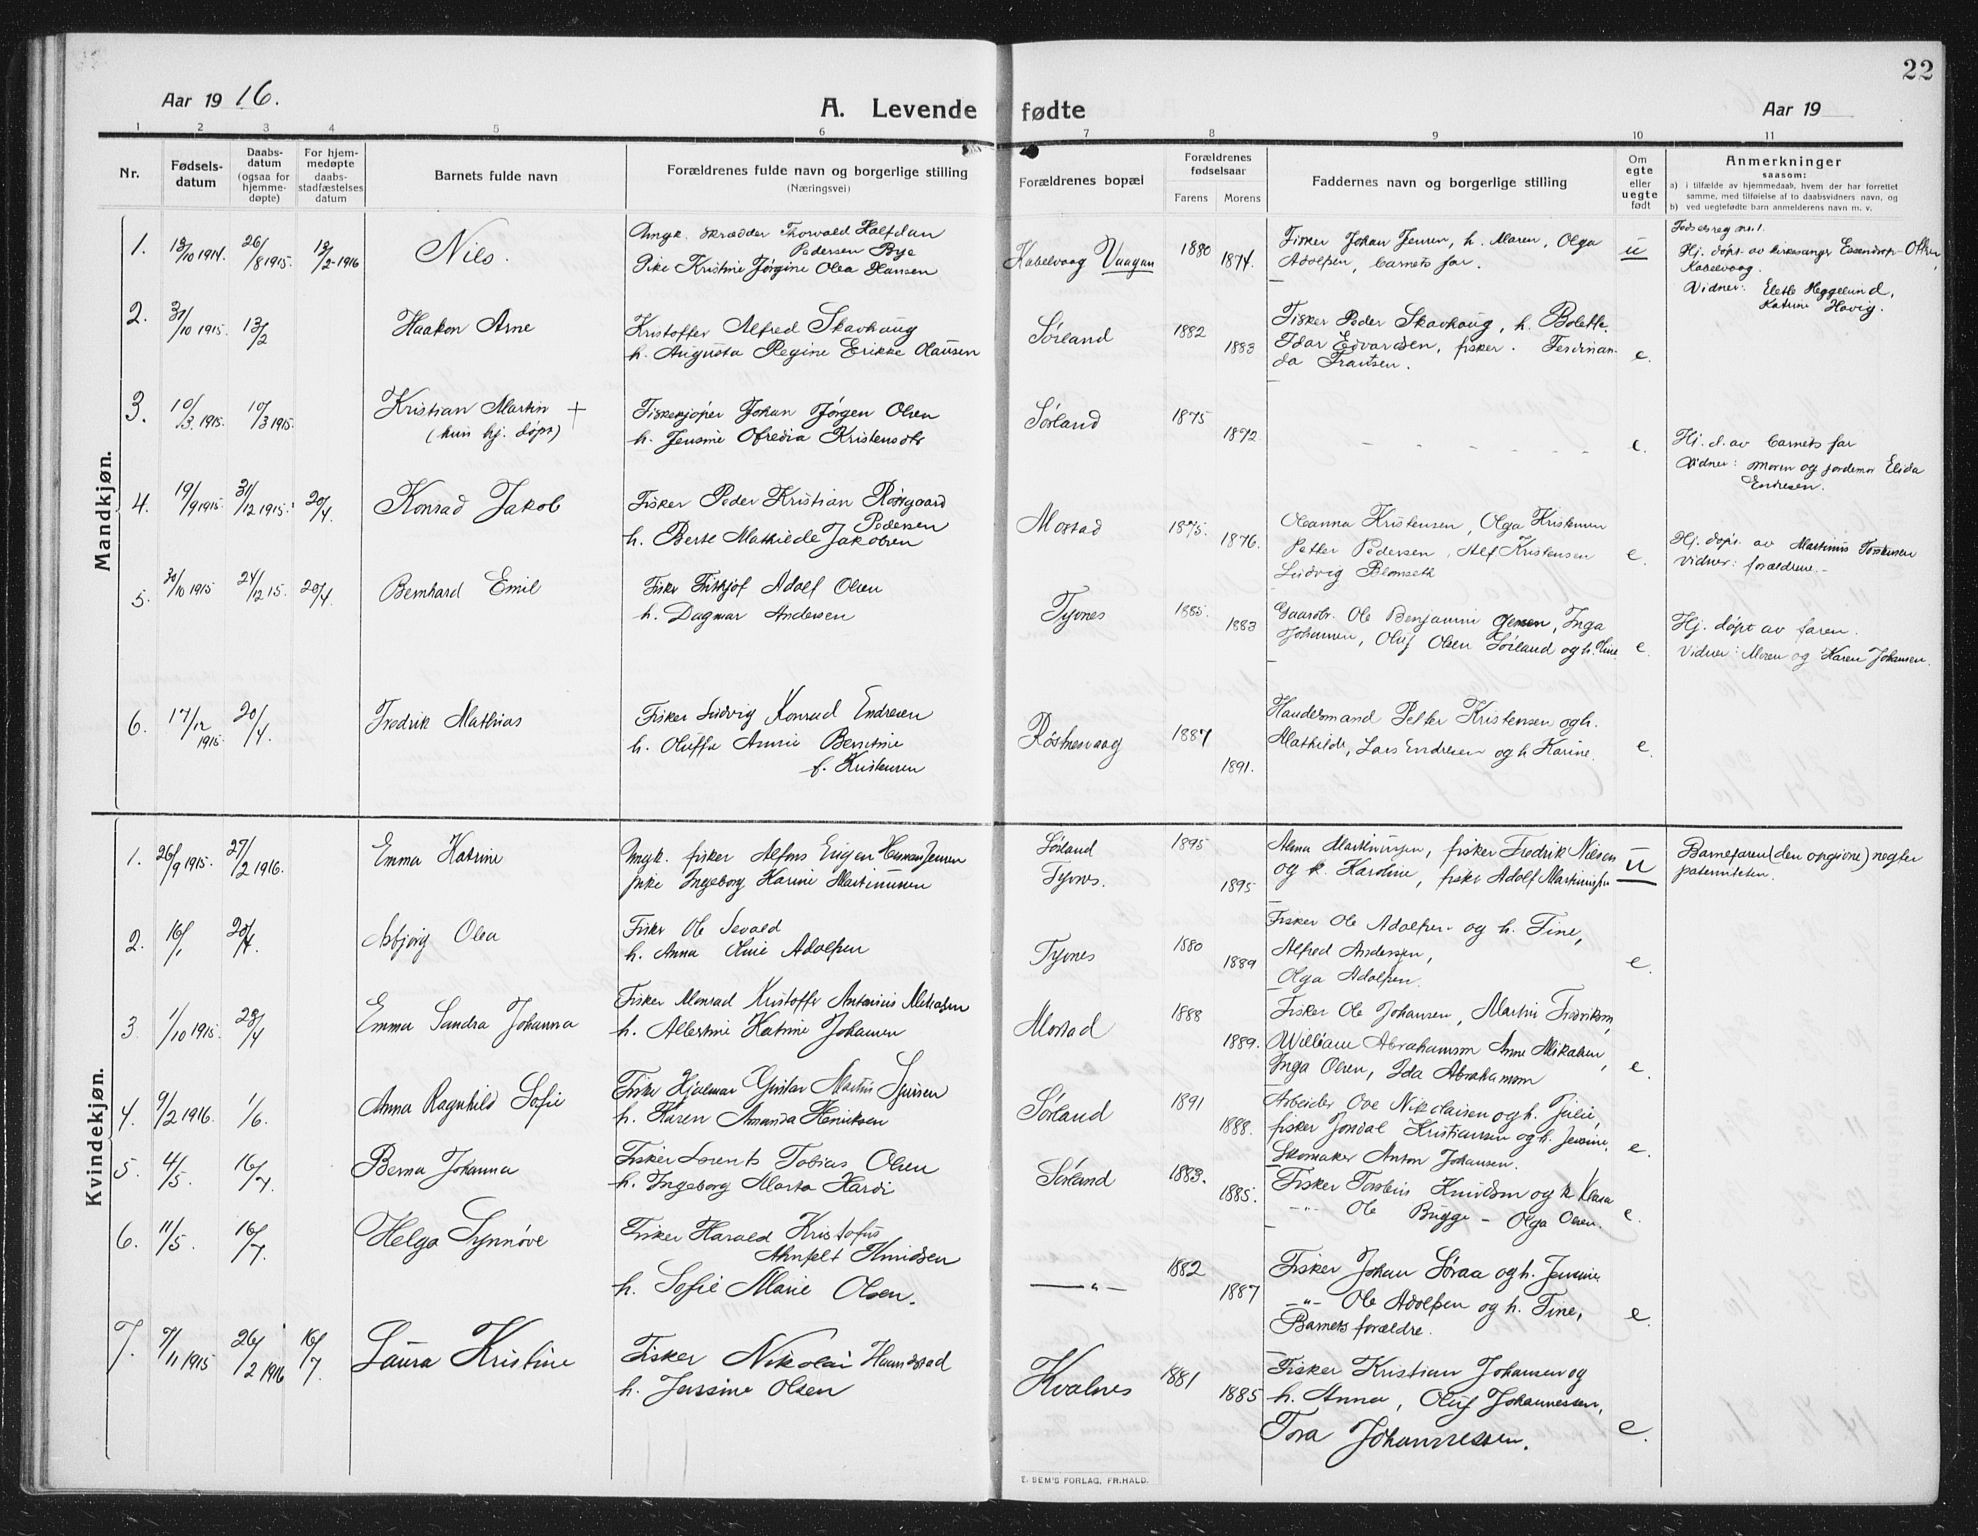 22
Aar 19 16.
A. Levende fødte
Aar 19
1 2 3 4 5 6 7 8 9 10 11
Nr.
Fødsels-
datum
Daabs-
datum
(ogsaa for
hjemme-
døpte)
For hjem-
medøpte
daabs-
stadfæstelses
datum
Barnets fulde navn
Forældrenes fulde navn og borgerlige stilling
(Næringsvei)
Forældrenes bopæl
Forældrenes
fødselsaar
Farens Morens
Faddernes navn og borgerlige stilling
Om
egte
eller
uegte
født
Anmerkninger
saasom:
a) i tilfælde av hjemmedaab, hvem der har forrettet
samme, med tilføielse af to daabsvidners navn, og
b) ved uegtefødte barn anmelderens navn m. v.
Mandkjøn.
1. 13/10 1914. 26/8 1915. 13/2-1916 Nils.
Ungk. skrædder Thorvald Halfdan
Pedersen Bye
Pike Kristine Jørgine Olea Hansen
Kabelvaag Vaagan 1880 1874.
Fisker Johan Jensen, h. Maren, Olga
Adolfsen, barnets far.
u
Fødselsreg nr. 1.
Hj. døpt av kirkesanger Essendrop
Kabelvaag.
Vidner: Heggelund,
Katrine Hovig.
2. 31/10 1915. 13/2 Haakon Arne
Kristoffer Alfred Skavhaug
h. Augusta Regine Erikke Olausen
Sørland 1882 1883
Fisker Peder Skavhaug, h. Bolette.
Idar Edvardsen, fisker. Ferdinan-
da Frantsen.
e.
3. 10/3. 1915. 10/3 1915. Kristian Martin +
(kun hj. døpt)
Fiskekjøper Johan Jørgen Olsen
h. Jensine Ofredia Kristensdtr
Sørland 1875 1892
e.
Hj. d. av barnets far
Vidner: moren og jordemor Elida
Endresen.
4. 19/9 1915. 31/12 1915. 20/4. Konrad Jakob
Fisker Peder Kristian Røstgaard
Pedersen
h. Berte Mathilde Jakobsen
Mostad 1875. 1876.
Oleanna Kristensen, Olga Kristensen
Petter Pedersen, Alf Kristensen
Ludvig Blomseth
e.
Hj. døpt av Martinus Torstensen
Vidner: forældrene.-
5. 30/10 1915 24/12 15. 20/4. Bernhard Emil
Fisker Fritjof Adolf Olsen
h. Dagmar Andersen
Tyvnes 1885. 1883
Gaardbr. Ole Benjamin Olsen, Inga
Johansen, Oluf Olsen Sørland og h. Tine
e.
Hj. døpt av faren.
Vidner: Moren og Karen Johansen.
6. 17/12 1915. 20/4. Fredrik Mathias
Fisker Ludvig Konrad Endresen
h. Oluffa Annie Berntine
f. Kristensen
Røstnesvaag 1887 1891.
Handelsmand Petter Kristensen og h.
Mathilde, Lars Endresen og h. Karine.
e.
Kvindekjøn.
1. 26/9 1915. 27/2 1916. Emma Katrine
Ungk. fisker Alfons Eugen Herman Jensen
pike Ingeborg Karine Martinussen
Sørland
Tyvnes. 1895 1895
Alma Martinussen, fisker Fredrik Nilsen
og k. Karoline, fisker Adolf Martinussen
u
Barnefaren (den opgivne) negter
paterniteten.
2. 16/1 20/4. Asbjørg Olea
Fisker Ole Sevald
h. Anna Oline Adolfsen
Tyvnes 1880 1889
Fisker Ole Adolfsen og h. Tine,
Alfred Andersen,
Olga Adolfsen.
e.
3 1/10 1915. 23/4 Emma Sandra Johanna
Fisker Monrad Kristoffer Antonius Mikalsen
h. Albertine Katrine Johansen
Mostad 1888 1889.
Fisker Ole Johansen, Martin Fredriksen,
William Abrahamsen Anne Mikalsen,
Inga Olsen, Ida Abrahamsen
e.
4. 9/2 1916. 1/6. Anna Ragnhild Sofie
Fisker Hjalmar Gustav Martin Iversen
h. Karen Amanda Henriksen
Sørland 1891 1888.
Arbeider Ove Nikolaisen og h. Julie,
fisker Jondal Kristiansen og h. Jensine,
Skomaker Anton Johansen.
e.
5. 4/5. 16/7. Berna Johanna
Fisker Lorents Tobias Olsen
h. Ingeborg Marta Hardi
Sørland 1883. 1885.
Fisker Torstein Knudsen og k Klara
-"- Ole Bugge - Olga Olsen.
e.
6. 11/5. 16/7. Helga Synnøve
Fisker Harald Kristofus
Ahnfelt Knudsen
h. Sofie Marie Olsen.
-"- 1882 1887
Fisker Johan Søraa og h. Jensine
-"- Ole Adolfsen og h. Tine,
Barnets forældre.
e.
7. 7/11 1915 26/2 1916 16/7. Laura Kristine
Fisker Nikolai
h. Jenssine Olsen
Kvalnes 1881 1885
Fisker Kristian Johansen og
h. Anna, Oluf Johannessen,
Tora Johannessen.
e.
E. SEM'S FORLAG, FR.HALD.